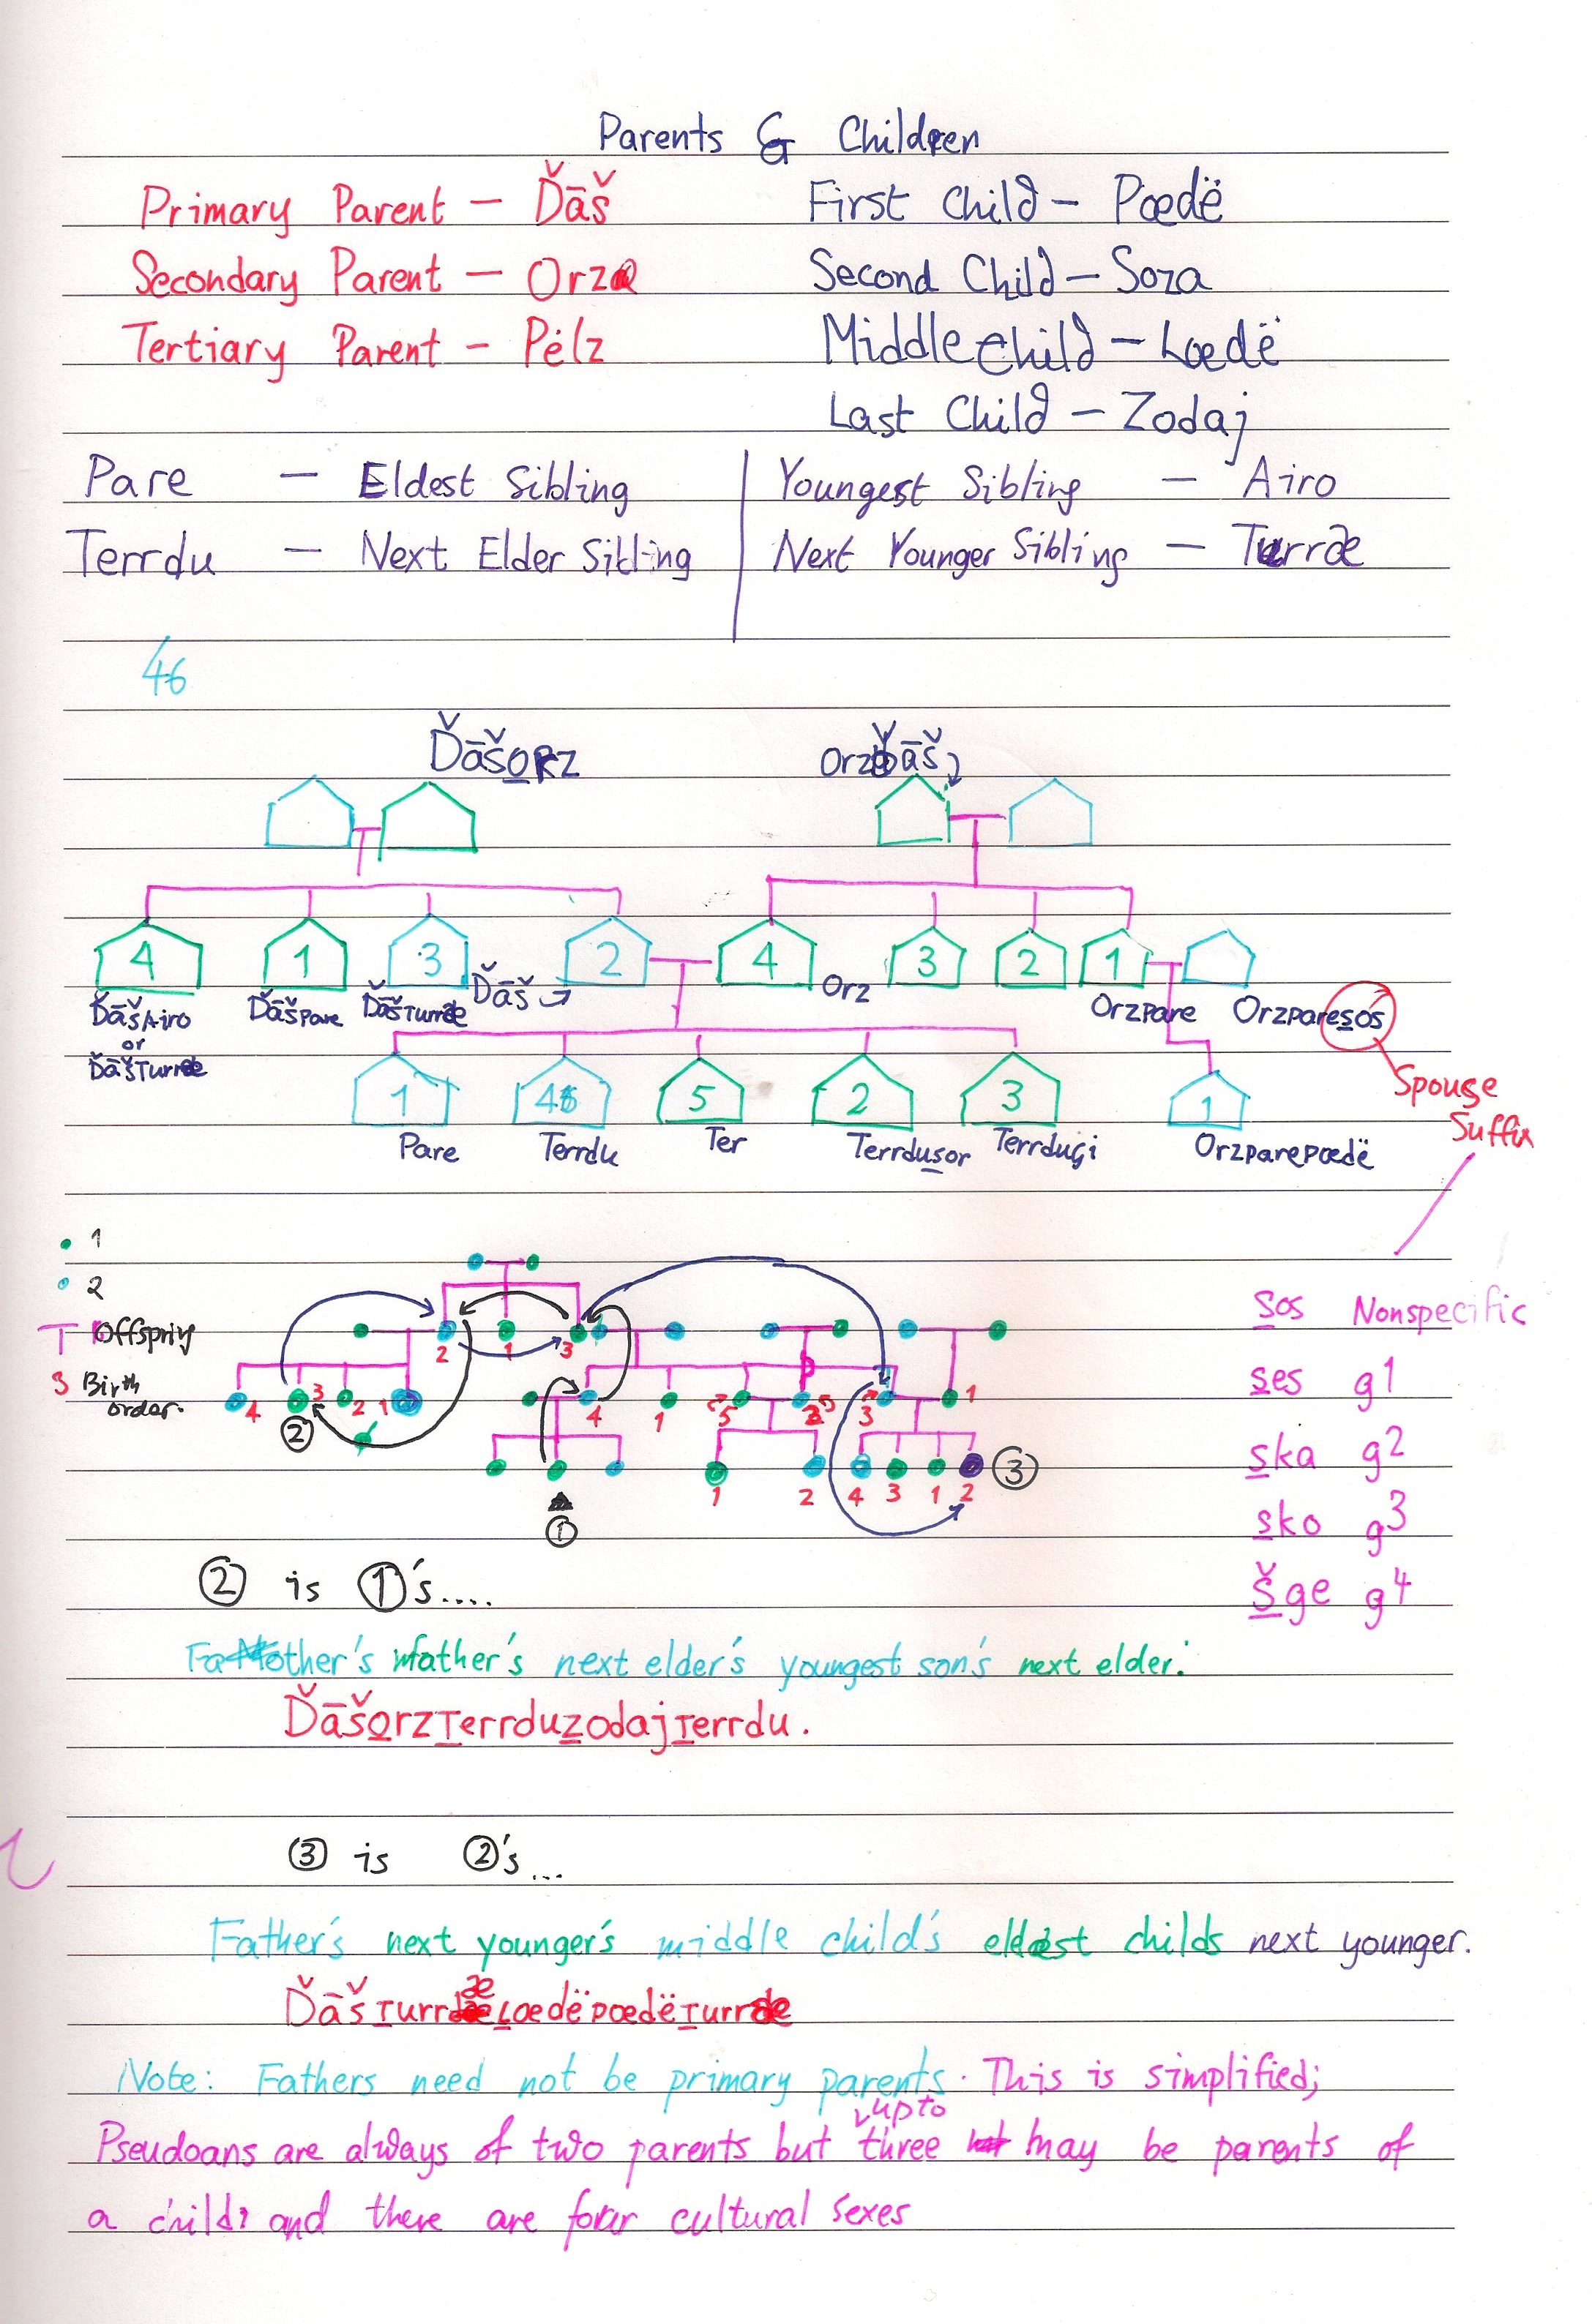 Parents & Children
Primary Parent – Ďāš
First Child – Pœdë
Secondary Parent – Orz
Second Child – Soza
Tertiary Parent – Pėlz
Middle Child – Lœdë
Last Child – Zodaj
Pare – Eldest Sibling
Youngest Sibling – Airo
Terrdu – Next Elder Sibling
Next Younger Sibling – Turræ
46
Ďāšorz
OrzĎāš
4 1 3 2 4 3 2 1
ĎāšAiro
or
ĎāšTurræ
ĎāšPare
ĎāšTurræ
Ďāš
Orz
Orzpare
Orzparesos
Spouse
Suffix
1 4 5 2 3 1
Pare Terrdu Ter Terrdusor Terrduģi Orzparepœdë
1
2
Offspring
3 Birth
order.
2 1 3
4 3 2 1 4 1 5 2 3 1
②
1 2 4 3 1 2 ③
①
Sos Nonspecific
ses g1
ska g2
sko g3
Šge g4
② is ①'s....
Father's father's next elder's youngest son's next elder.
ĎāšorzTerrduzodajTerrdu.
③ is ②'s...
Father's next younger's middle child's eldest childs next younger.
ĎāšTurræLœdëpœdëTurræ
Note: Fathers need not be primary parents. This is simplified;
Pseudoans are always of two parents but up to three may be parents of
a child; and there are four cultural sexes